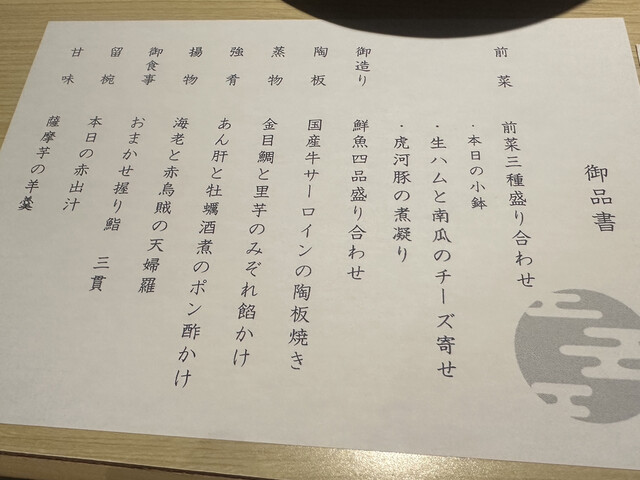 御品書
前菜 前菜三種盛り合わせ
・本日の小鉢
・生ハムと南瓜のチーズ寄せ
・虎河豚の煮凝り
御造り 鮮魚四品盛り合わせ
陶板 国産牛サーロインの陶板焼き
蒸物 金目鯛と里芋のみぞれ餡かけ
強肴 あん肝と牡蠣酒煮のポン酢かけ
揚物 海老と赤烏賊の天婦羅
御食事 おまかせ握り鮨 三貫
留椀 本日の赤出汁
甘味 薩摩芋の羊羹